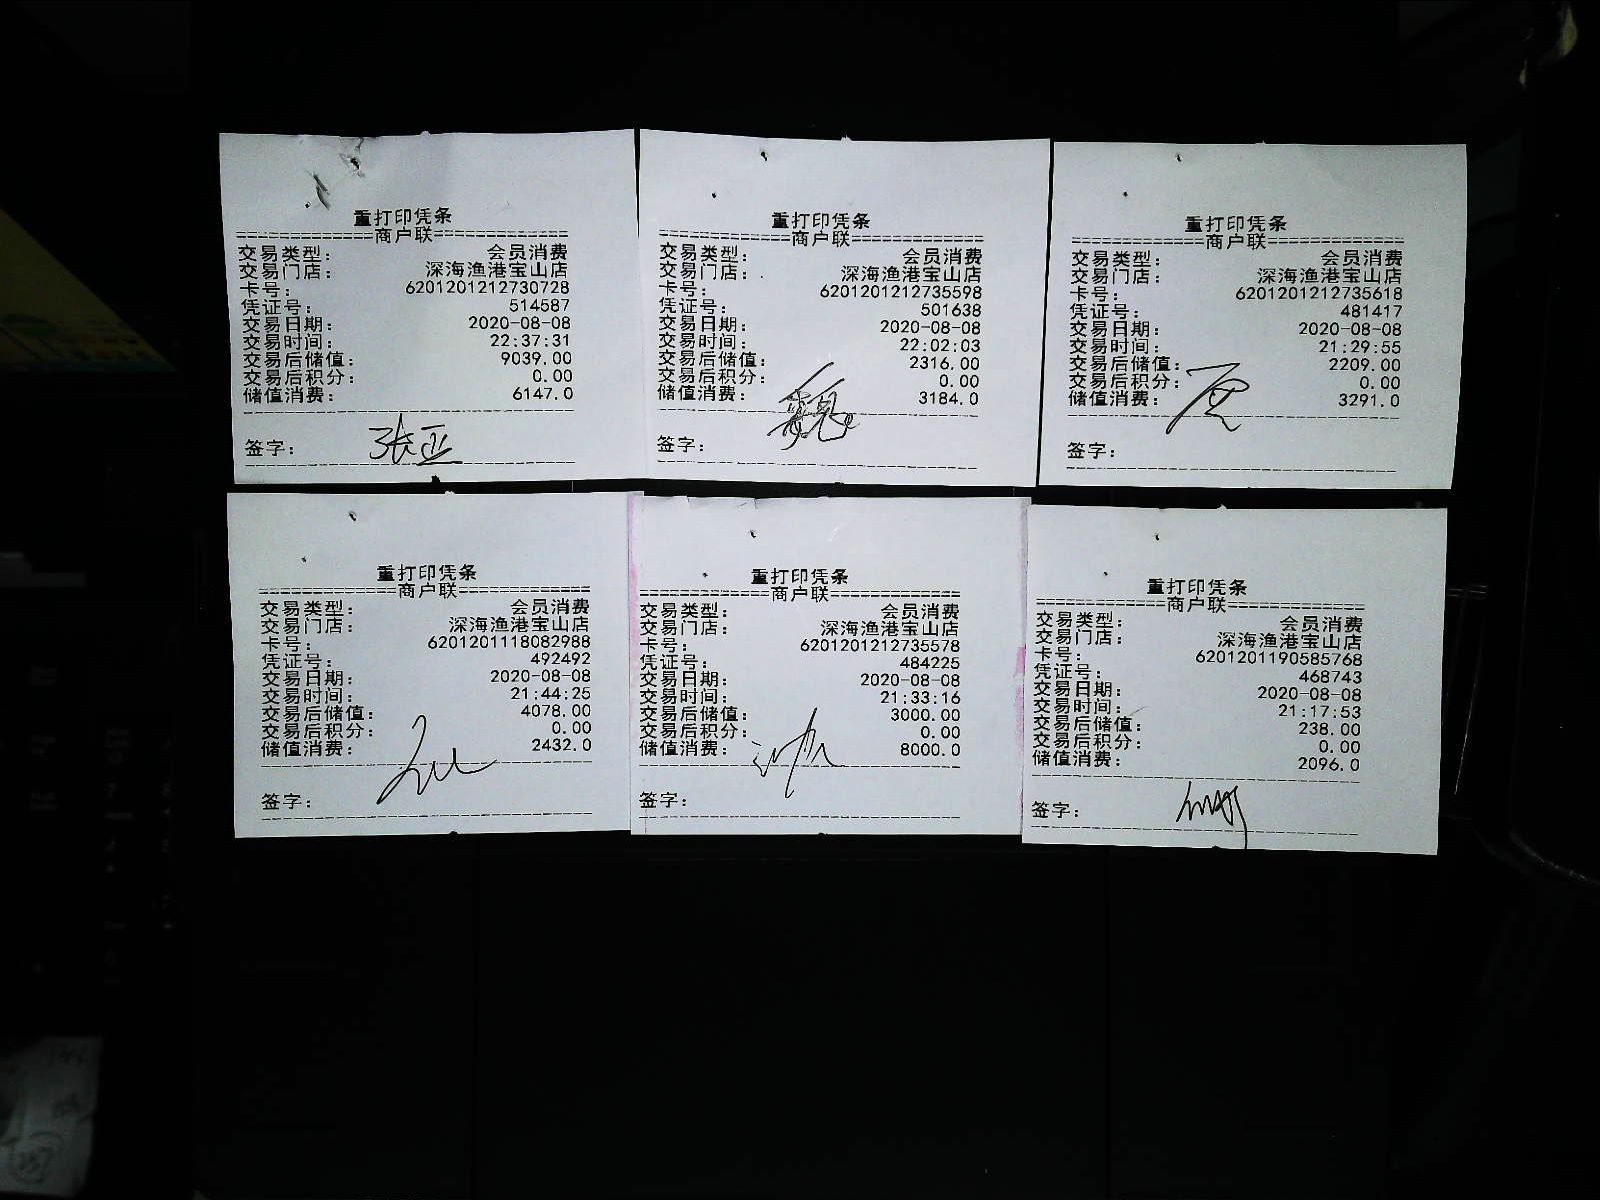 重打印凭条
================商户联================
交易类型： 会员消费
交易门店： 深海渔港宝山店
卡号： 6201201212730728
凭证号： 514587
交易日期： 2020-08-08
交易时间： 22:37:31
交易后储值： 9039.00
交易后积分： 0.00
储值消费： 6147.0
签字： 张亚
重打印凭条
================商户联================
交易类型： 会员消费
交易门店： 深海渔港宝山店
卡号： 6201201212735598
凭证号： 501638
交易日期： 2020-08-08
交易时间： 22:02:03
交易后储值： 2316.00
交易后积分： 0.00
储值消费： 3184.0
签字： 魏
重打印凭条
================商户联================
交易类型： 会员消费
交易门店： 深海渔港宝山店
卡号： 6201201212735618
凭证号： 481417
交易日期： 2020-08-08
交易时间： 21:29:55
交易后储值： 2209.00
交易后积分： 0.00
储值消费： 3291.0
签字：
重打印凭条
================商户联================
交易类型： 会员消费
交易门店： 深海渔港宝山店
卡号： 6201201118082988
凭证号： 492492
交易日期： 2020-08-08
交易时间： 21:44:25
交易后储值： 4078.00
交易后积分： 0.00
储值消费： 2432.0
签字：
重打印凭条
================商户联================
交易类型： 会员消费
交易门店： 深海渔港宝山店
卡号： 6201201212735578
凭证号： 484225
交易日期： 2020-08-08
交易时间： 21:33:16
交易后储值： 3000.00
交易后积分： 0.00
储值消费： 8000.0
签字：
重打印凭条
================商户联================
交易类型： 会员消费
交易门店： 深海渔港宝山店
卡号： 6201201190585768
凭证号： 468743
交易日期： 2020-08-08
交易时间： 21:17:53
交易后储值： 238.00
交易后积分： 0.00
储值消费： 2096.0
签字：